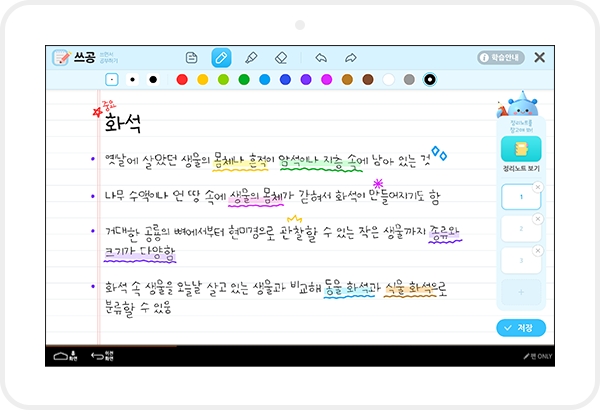 쓰공 쓰면서
공부하기
학습안내
중요
화석
옛날에 살았던 생물의 몸체나 흔적이 암석이나 지층 속에 남아 있는 것
나무 수액이나 언 땅 속에 생물의 몸체가 갇혀서 화석이 만들어지기도 함
거대한 공룡의 뼈에서부터 현미경으로 관찰할 수 있는 작은 생물까지 종류와
크기가 다양함
화석 속 생물을 오늘날 살고 있는 생물과 비교해 동물 화석과 식물 화석으로
분류할 수 있음
정리노트를
참고해 봐!
정리노트 보기
1
2
3
저장
홈
화면
이전
화면
펜 ONLY